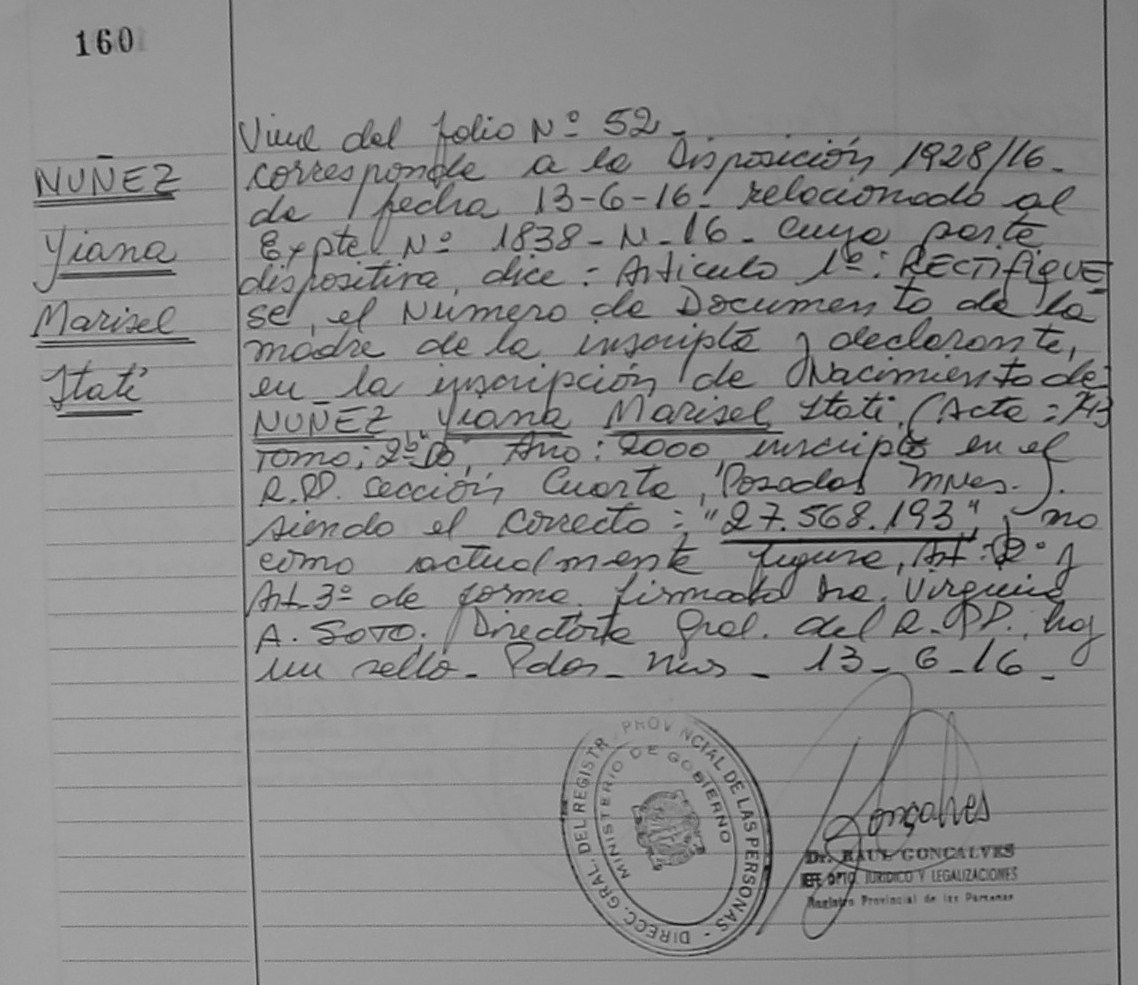 160
NUÑEZ
Yiana
Marisel
Itatí
Viene del folio Nº 52.
corresponde a la Disposición 1928/16.
de fecha 13-6-16. relacionado al
Expte Nº 1838-N-16. cuya parte
dispositiva, dice: Artículo 1º: RECTIFIQUE
SE, el Número de Documento de la
madre de la inscripta y declarante,
en la inscripción de Nacimiento de
NUÑEZ Yiana Marisel Itatí (Acta:
Tomo: 2º Año: 2000 inscripta en el
R.PP. sección Cuarta, Posadas Mnes.).
siendo el correcto: "27.568.193", y no
como actualmente figura, Art: 2º y
Art. 3º de forma. firmado Dra. Virginia
A. SOTO. Directora Gral. del R.PP. hay
un sello. Pdas. Mns. 13-6-16.
DIRECC. GRAL. DEL REGISTR PROVINCIAL DE LAS PERSONAS
MINISTERIO DE GOBIERNO
Gonçalves
Dr. RAUL GONCALVES
JEFE DPTO. JURIDICO Y LEGALIZACIONES
Registro Provincial de las Personas